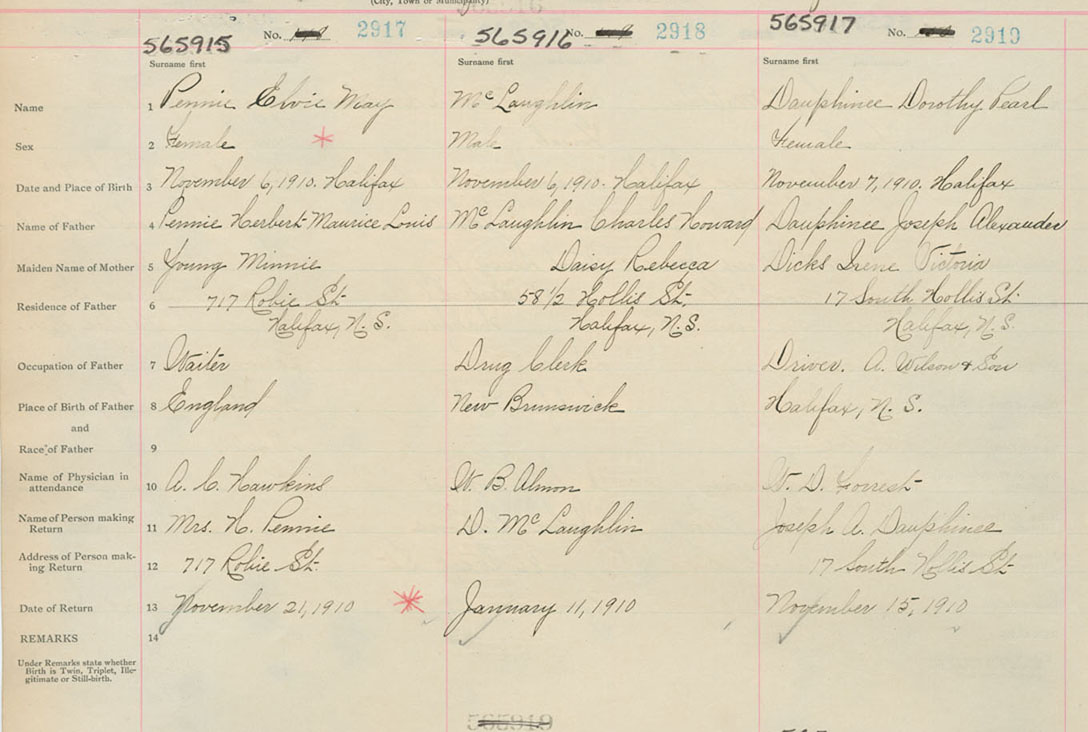 (City, Town or Municipality)
565915 No. 2917 565916 No. 2918 565917 No. 2919
Surname first Surname first Surname first
Name 1 Pennie Elvie May McLaughlin Dauphinee Dorothy Pearl
Sex 2 Female * Male Female
Date and Place of Birth 3 November 6, 1910. Halifax November 6, 1910. Halifax November 7, 1910. Halifax
Name of Father 4 Pennie Herbert Maurice Louis McLaughlin Charles Howard Dauphinee Joseph Alexander
Maiden Name of Mother 5 Young Minnie Daisy Rebecca Dicks Irene Victoria
Residence of Father 6 717 Robie St. 58 1/2 Hollis St. 17 South Hollis St.
Halifax, N.S. Halifax, N.S. Halifax, N.S.
Occupation of Father 7 Waiter Drug Clerk Driver. A. Wilson & Son
Place of Birth of Father 8 England New Brunswick Halifax, N.S.
and
Race of Father 9
Name of Physician in
attendance 10 A. C. Hawkins W. B. Almon W. D. Forrest
Name of Person making
Return 11 Mrs. H. Pennie D. McLaughlin Joseph A. Dauphinee
Address of Person mak-
ing Return 12 717 Robie St. 17 South Hollis St.
Date of Return 13 November 21, 1910 * January 11, 1910 November 15, 1910
REMARKS 14
Under Remarks state whether
Birth is Twin, Triplet, Ille-
gitimate or Still-birth.
565919